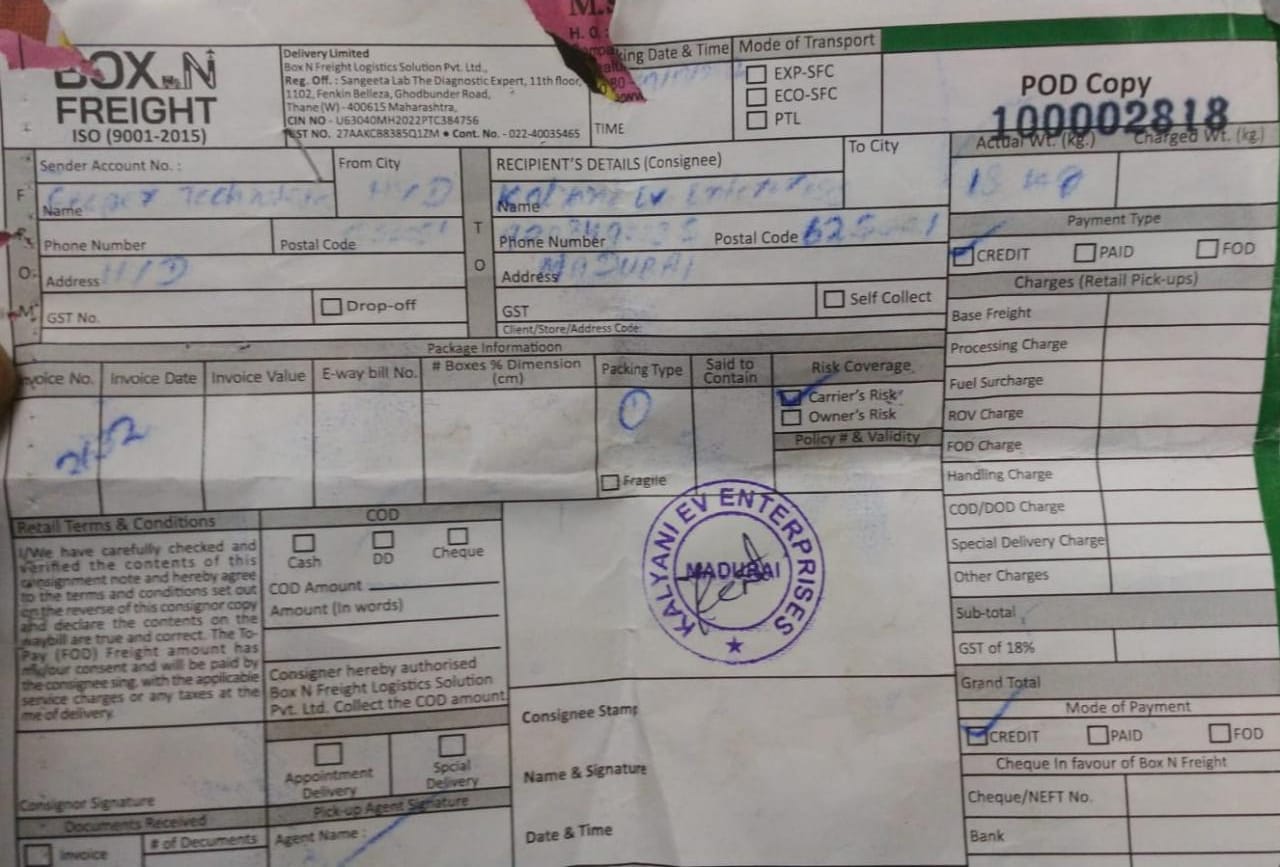 M.S
H. O. :
BOX N
FREIGHT
ISO (9001-2015)
Delivery Limited
Box N Freight Logistics Solution Pvt. Ltd.,
Reg. Off. : Sangeeta Lab The Diagnostic Expert, 11th floor,
1102, Fenkin Belleza, Ghodbunder Road,
Thane (W) - 400615 Maharashtra,
CIN NO - U63040MH2022PTC384756
GST NO. 27AAKCB8385Q1ZM • Cont. No. - 022-40035465
king Date & Time
TIME
Mode of Transport
EXP-SFC
ECO-SFC
PTL
POD Copy
100002818
Sender Account No. :
From City
H/D
Name
Phone Number
Postal Code
Address H/D
GST No.
Drop-off
F
R
O
M
T
O
RECIPIENT'S DETAILS (Consignee)
To City
Name Kalyani Ev Enterprises
Phone Number
Postal Code 625001
Address MADURAI
GST
Self Collect
Client/Store/Address Code:
Actual Wt. (kg.)
Charged Wt. (kg.)
Payment Type
CREDIT
PAID
FOD
Charges (Retail Pick-ups)
Base Freight
Processing Charge
Fuel Surcharge
ROV Charge
FOD Charge
Handling Charge
COD/DOD Charge
Special Delivery Charge
Other Charges
Sub-total
GST of 18%
Grand Total
Mode of Payment
CREDIT
PAID
FOD
Cheque In favour of Box N Freight
Cheque/NEFT No.
Bank
Package Informatioon
voice No.
Invoice Date
Invoice Value
E-way bill No.
# Boxes % Dimension
(cm)
Packing Type
Said to
Contain
Risk Coverage
Carrier's Risk
Owner's Risk
Policy # & Validity
Fragile
Retail Terms & Conditions
I/We have carefully checked and
verified the contents of this
consignment note and hereby agree
to the terms and conditions set out
on the reverse of this consignor copy
and declare the contents on the
waybill are true and correct. The To-
Pay (FOD) Freight amount has
my/our consent and will be paid by
the consignee sing, with the applicable
service charges or any taxes at the
me of delivery.
Consignor Signature
Documents Received
Invoice
# of Documents
COD
Cash
DD
Cheque
COD Amount
Amount (In words)
Consigner hereby authorised
Box N Freight Logistics Solution
Pvt. Ltd. Collect the COD amount
Appointment
Delivery
Spcial
Delivery
Pick-up Agent Signature
Agent Name :
KALYANI EV ENTERPRISES
MADURAI
Consignee Stamp
Name & Signature
Date & Time